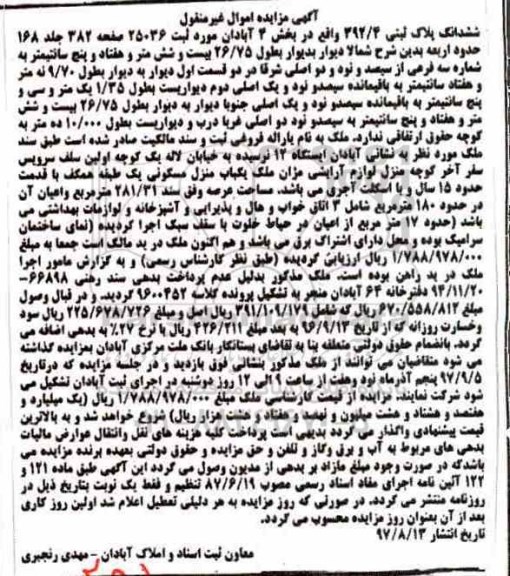 آگهی مزایده اموال غیرمنقول
ششدانگ پلاک ثبتی ۳۹۲/۴ واقع در بخش ۴ آبادان مورد ثبت ۲۵۰۳۶ صفحه ۳۸۲ جلد ۱۶۸
حدود اربعه بدین شرح شمالا دیوار بدیوار بطول ۲۶/۷۵ بیست و شش متر و هفتاد و پنج سانتیمتر به
شماره سه فرعی از سیصد و نود و دو اصلی شرقا در دو قسمت اول دیوار به دیوار بطول ۹/۷۰ نه متر
و هفتاد سانتیمتر به باقیمانده سیصدو نود و یک اصلی دوم دیواریست بطول ۱/۳۵ یک متر و سی و
پنج سانتیمتر به باقیمانده سیصدو نود و یک اصلی جنوبا دیوار به دیوار بطول ۲۶/۷۵ بیست و شش
متر و هفتاد و پنج سانتیمتر به سیصدو نود دو اصلی غربا درب و دیواریست بطول ۱۰/۰۰۰ ده متر به
کوچه حقوق ارتفاقی ندارد. ملک به نام یاراله فروغی ثبت و سند مالکیت صادر شده است طبق سند
ملک مورد نظر به نشانی آبادان ایستگاه ۱۲ نرسیده به خیابان لاله یک کوچه اولین سلف سرویس
سفر آخر کوچه منزل لوازم آرایشی مژان ملک یکباب منزل مسکونی یک طبقه همکف با قدمت
حدود ۱۵ سال و با اسکلت آجری می باشد. مساحت عرصه وفق سند ۲۸۱/۳۱ مترمربع واعیان آن
در حدود ۱۸۰ مترمربع شامل ۳ اتاق خواب و هال و پذیرایی و آشپزخانه و لوازمات بهداشتی می
باشد (حدود ۱۷ متر مربع از اعیان در حیاط خلوت با سقف سبک اجرا گردیده (نمای ساختمان
سرامیک بوده و محل دارای اشتراک برق می باشد و هم اکنون ملک در ید مالک است جمعا به مبلغ
۱/۷۸۸/۹۷۸/۰۰۰ ریال ارزیابی گردیده (طبق نظر کارشناس رسمی) و به گزارش مامور اجرا
ملک در ید راهن بوده است. ملک مذکور بدلیل عدم پرداخت بدهی سند رهنی ۶۶۸۹۸-
۹۴/۱۱/۲۰ دفترخانه ۶۴ آبادان منجر به تشکیل پرونده کلاسه ۹۶۰۰۴۵۲ گردید. و در قبال وصول
مبلغ ۶۲۰/۵۵۸/۸۱۲ ریال که شامل ۳۹۱/۱۰۹/۱۷۹ ریال اصل و مبلغ ۲۲۵/۶۷۸/۷۲۶ ریال سود
وخسارت روزانه که از تاریخ ۹۶/۹/۱۳ به بعد مبلغ ۴۲۶/۲۱۱ ریال با نرخ ۲۷٪ به بدهی اضافه می
گردد. بانضمام حقوق دولتی متعلقه بنا به تقاضای بستانکار بانک ملت مرکزی آبادان بمزایده گذاشته
می شود متقاضیان می توانند از ملک مذکور بنشانی فوق بازدید و در جلسه مزایده که درتاریخ
۹۷/۹/۵ پنجم آذرماه نود وهفت از ساعت ۹ الی ۱۲ روز دوشنبه در اجرای ثبت آبادان تشکیل می
شود شرکت نمایند. مزایده از قیمت کارشناسی ملک مبلغ ۱/۷۸۸/۹۷۸/۰۰۰ ریال (یک میلیارد و
هفتصد و هشتاد و هشت میلیون و نهصد و هفتاد و هشت هزار ریال) شروع خواهد شد و به بالاترین
قیمت پیشنهادی واگذار می گردد بدیهی است پرداخت کلیه هزینه های نقل وانتقال عوارض مالیات
بدهی های مربوط به آب و برق وگاز و تلفن و حق مزایده و حقوق دولتی بعهده برنده مزایده می
باشدکه در صورت وجود مبلغ مازاد بر بدهی از مدیون وصول می گردد این آگهی طبق ماده ۱۲۱ و
۱۲۲ آئین نامه اجرای مفاد اسناد رسمی مصوب ۸۷/۶/۱۹ تنظیم و فقط یک نوبت بتاریخ ذیل در
روزنامه منتشر می گردد. در صورتی که روز مزایده به هر دلیلی تعطیل اعلام شد اولین روز کاری
بعد از آن بعنوان روز مزایده محسوب می گردد.
تاریخ انتشار ۹۷/۸/۱۳
معاون ثبت اسناد و املاک آبادان - مهدی رنجبری